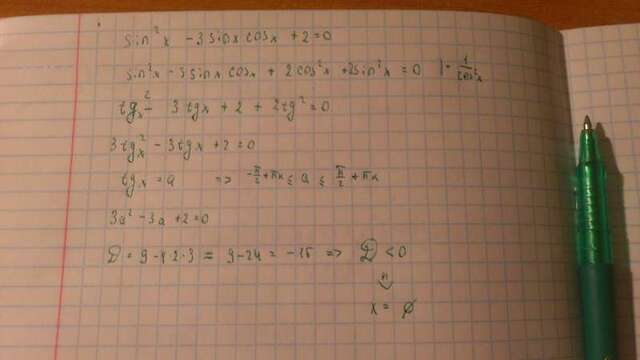 sin²x - 3 sinx cosx + 2 = 0
sin²x - 3 sinx cosx + 2cos²x + 2sin²x = 0 | · 1/cos²x
tg²x - 3tgx + 2 + 2tg² = 0
3tg²x - 3tgx + 2 = 0
tgx = a => -π/2 + πk ≤ a ≤ π/2 + πk
3a² - 3a + 2 = 0
D = 9 - 4·2·3 = 9 - 24 = -15 => D < 0
⇓
x = ∅